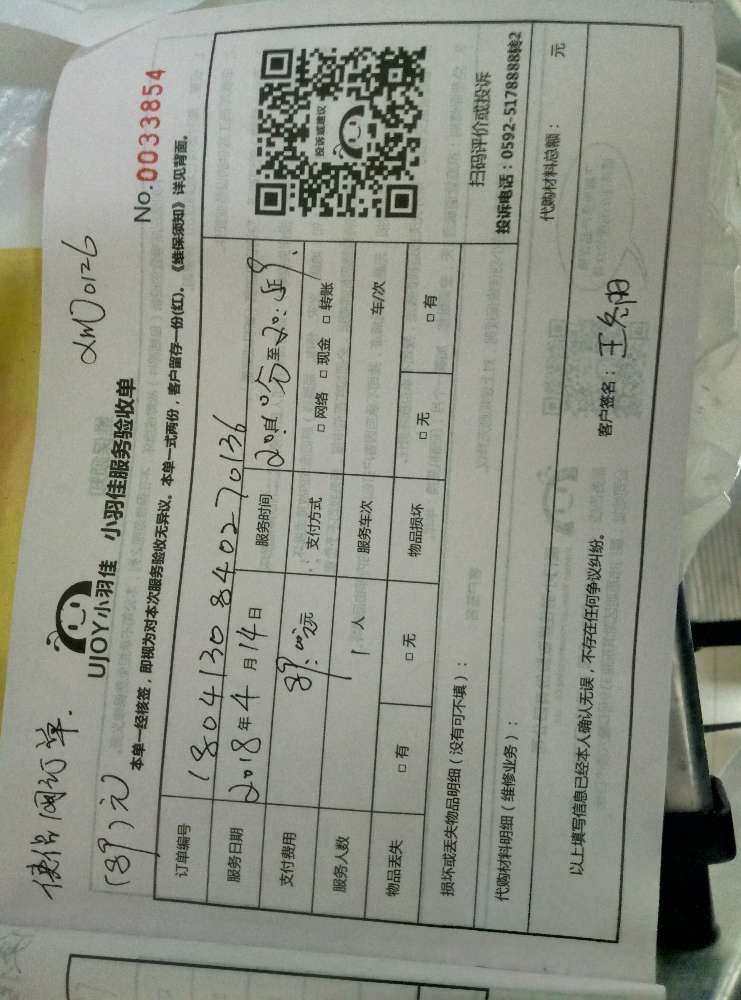 订单.
XMJ0126
UJOY小羽佳 小羽佳服务验收单
No.0033854
本单一经核签，即视为对本次服务验收无异议。本单一式两份，客户留存一份(红)。《维保须知》详见背面。
订单编号 180413084027 0136
服务日期 2018年4月14日 服务时间 至
支付费用 元 支付方式 □ 网络 □ 现金 □ 转账
服务人数 1人 服务车次 车/次
物品丢失 □ 有 □ 无 物品损坏 □ 无 □ 有
投诉或建议
扫码评价或投诉
投诉电话：0592-5178888转2
损坏或丢失物品明细（没有可不填）：
代购材料明细（维修业务）：
代购材料总额： 元
以上填写信息已经本人确认无误，不存在任何争议纠纷。
客户签名：王冬阳